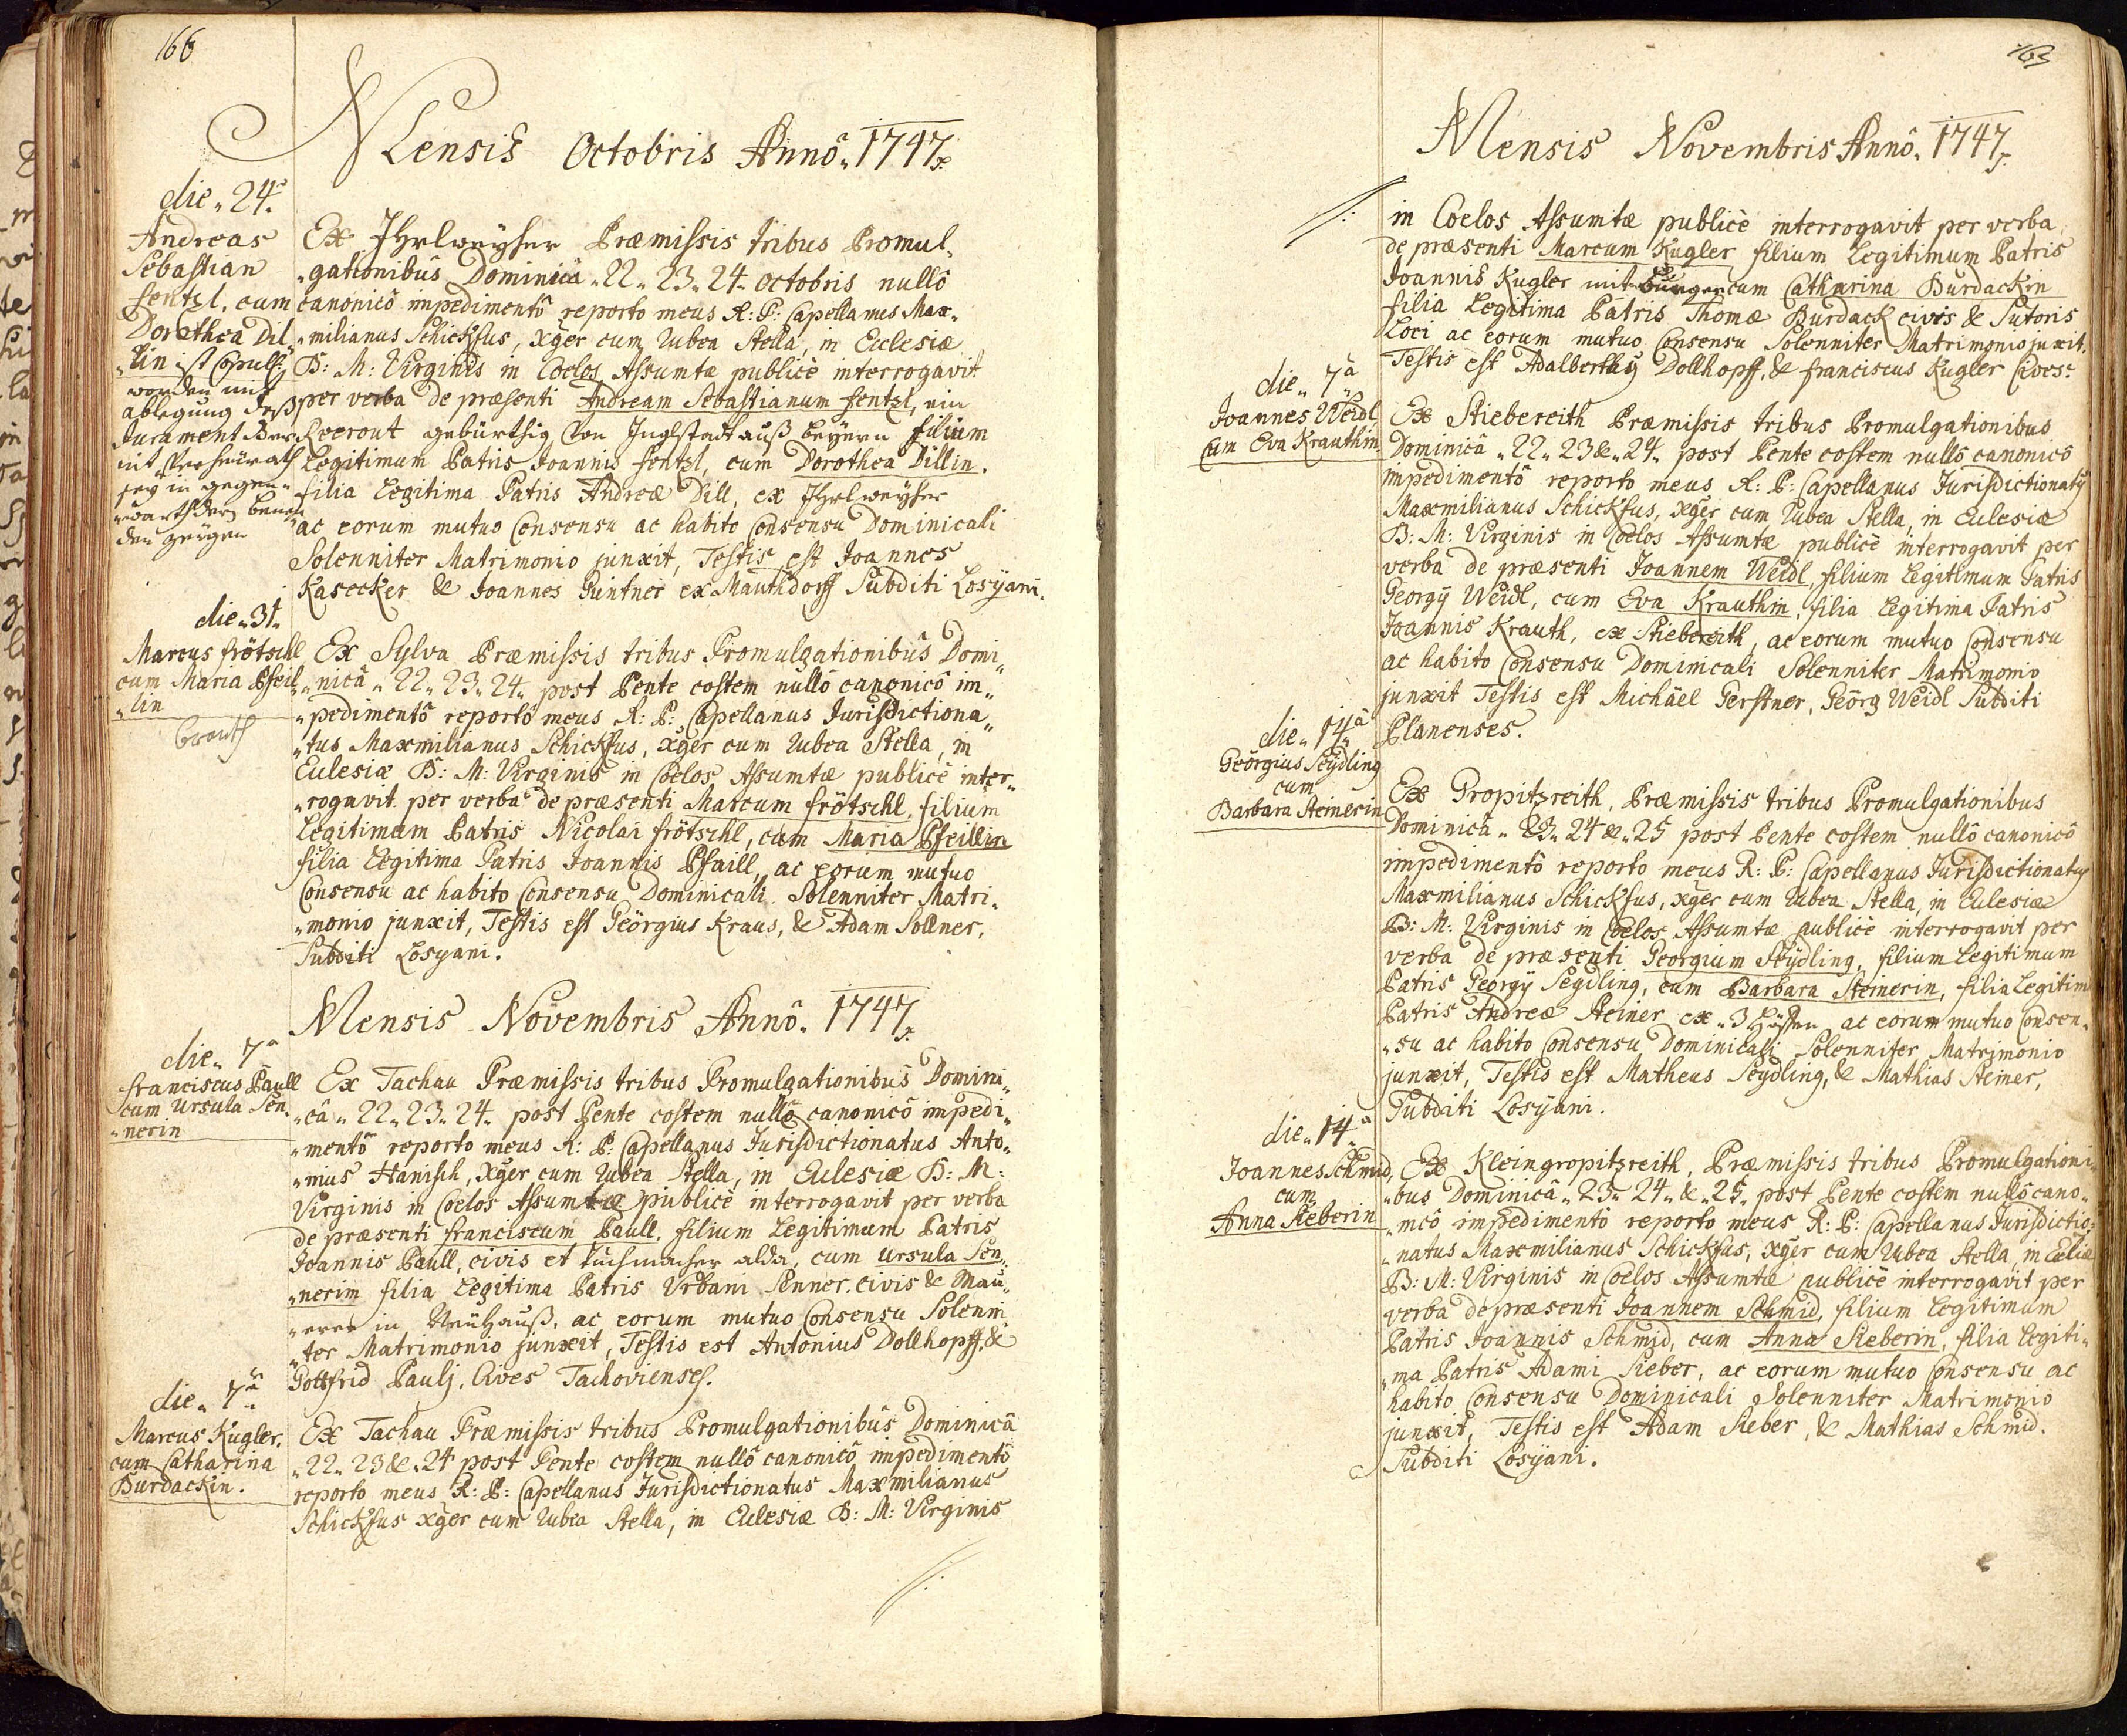 166
Mensis Octobris Annô. 1747.
die. 24.
Andreas
Sebastian
fentzl. cum
Dorothea Dil„
„lin ist Copulirt
worden mit
ablegung deß
Jurament Der
nit Verheürath
seÿ in gegen„
„warth deren benen
den zeügen
Ex Præmissis tribus Promul„
„gationibus Dominicâ „22„ 23„ 24„ octobris nullô
canonicô impedimentô reporto meus R: P: Capellanus Max„
„milianus Schickfus, xger cum rubea Stella, in Eclesiæ
B: M: Virginis in Coelos Assumtæ publicè interrogavit
per verba de præsenti Andream Sebastianum fentzl, ein
gebürthig Von Inglstadt auß beÿern filium
Legitimum Patris Joannis fentzl, cum Dorothea Dillin.
filia Legitima Patris Andreæ Dill, ex
ac eorum mutuo Consensu ac habito Consensu Dominicali
Solenniter Matrimonio junxit, Testis est Joannes
Kasecker & Joannes Güntner ex Mauthdorff Subditi Losÿani.
die„ 31„
Marcus frötschl
cum Maria Pfeil„
„lin
Ex Sylva Præmissis tribus Promulgationibus Domi„
„nicâ „ 22„ 23„ 24„ post Pente costem nullô canonicô im„
„pedimentô reporto meus R: P: Capellanus Jurisdictiona„
„tus Maxmilianus Schickfus, xger cum rubea Stella, in
Eclesiæ B: M: Virginis in Coelos Assumtæ publicè inter„
„rogavit per verba de præsenti Marcum frötschl, filium
Legitimum Patris Nicolai frötschl, cum Maria Pfeillin
filia Legitima Patris Joannis Pfaill, ac eorum mutuo
Consensu ac habito Consensu Dominicali Solenniter Matri„
„monio junxit, Testis est Geörgius Kraus, & Adam Sollner,
Subditi Losyani.
Mensis Novembris Annô. 1747.
die„ 7a
franciscus Paull
cum Ursula Sen„
„nerin
Ex Tachau Præmissis tribus Promulgationibus Domini„
„câ „ 22„ 23„ 24„ post Pente costem nullô canonicô impedi„
„mentô reporto meus R: P: Capellanus Jurisdictionatus Anto„
„nius Hanisch, xger cum rubea Stella, in Eclesiæ B: M:
Virginis in Coelos Assumtæ publicè interrogavit per verba
de præsenti franciscum Paull, filium Legitimum Patris
Joannis Paull, civis et tuchmacher alda, cum Ursula Sen„
„nerim filia Legitima Patris Urbani Senner. civis & Mau„
„erer in Neühauß, ac eorum mutuo Consensu Solenni„
„ter Matrimonio junxit, Testis est Antonius Dollhopff, &
Gottfrid Paulj. Cives Tachovienses.
die„ 7a
Marcus Kugler.
cum Catharina
Burdackin.
Ex Tachau Præmissis tribus Promulgationibus Dominicâ
„22„ 23 &„ 24 post Pente costem nullô canonicô impedimentô
reporto meus R: P: Capellanus Jurisdictionatus Maxmilianus
Schickfus xger cum rubea Stella, in Eclesiæ B: M: Virginis
163
Mensis Novembris Annô. 1747.
in Coelos Assumtæ publicè interrogavit per verba
de præsenti Marcum Kugler filium Legitimum Patris
Joannis Kugler mit burger cum Catharina Burdackin
filia Legitima Patris Thomæ Burdack civis & Sutoris
Loci ac eorum mutuo Consensu Solenniter Matrimonio juxit.
Testis est Adalbertus Dollhopff, & franciscus Kugler Cives.
die„ 7a
Joannes Weidl,
cum Eva Krauthin.
Ex Stiebereith Præmissis tribus Promulgationibus
Dominicâ „22„ 23 &„ 24„ post Pente costem nullô canonicô
impedimentô reporto meus R: P: Capellanus Jurisdictionatus
Maxmilianus Schickfus, xger cum rubea Stella, in Eclesiæ
B: M: Virginis in Coelos Assumtæ publicè interrogavit per
verba de præsenti Joannem Weidl, filium Legitimum Patris
Georgÿ Weidl, cum Eva Krauthin, filia Legitima Patris
Joannis Krauth, ex Stiebereith, ac eorum mutuo Consensu
ac habito Consensu Dominicali Solenniter Matrimonio
junxit Testis est Michäel Gerstner, Geörg Weidl Subditi
Planenses.
die„ 14a
Geörgius Seÿdling
cum
Barbara Steinerin
Ex Gropitzreith, Præmissis tribus Promulgationibus
Dominicâ „ 23„ 24 &„ 25 post Pente costem nullô canonicô
impedimentô reporto meus R: P: Capellanus Jurisdictionatus
Maxmilianus Schickfus, xger cum rubea Stella, in Eclesiæ
B: M: Virginis in Coelos Assumtæ publicè interrogavit per
verba de præsenti Georgium Seÿdling, filium Legitimum
Patris Georgÿ Seydling, cum Barbara Steinerin, filia Legitim
Patris Andreæ Steiner ex „3 Höffen ac eorum mutuo Consen„
„su ac habito Consensu Dominicali Solenniter Matrimonio
junxit, Testis est Matheus Seydling, & Mathias Steiner,
Subditi Losÿani.
die„ 14a
Joannes Schmid,
cum
Anna Sieberin
Ex Kleingropitzreith, Præmissis tribus Promulgationi„
„bus Dominicâ „ 23„ 24„ &„ 25„ post Pente costem nullô cano„
„nicô impedimentô reporto meus R: P: Capellanus Jurisdictio„
„natus Maxmilianus Schickfus, xger cum rubea Stella, in Eclæ
B: M: Virginis in Coelos Assumtæ publicè interrogavit per
verba de præsenti Joannem Schmid, filium Legitimum
Patris Joannis Schmid, cum Anna Sieberin, filia Legiti„
„ma Patris Adami Sieber, ac eorum mutuo Consensu ac
habito Consensu Dominicali Solenniter Matrimonio
junxit, Testis est Adam Sieber, & Mathias Schmid.
Subditi Losÿani.